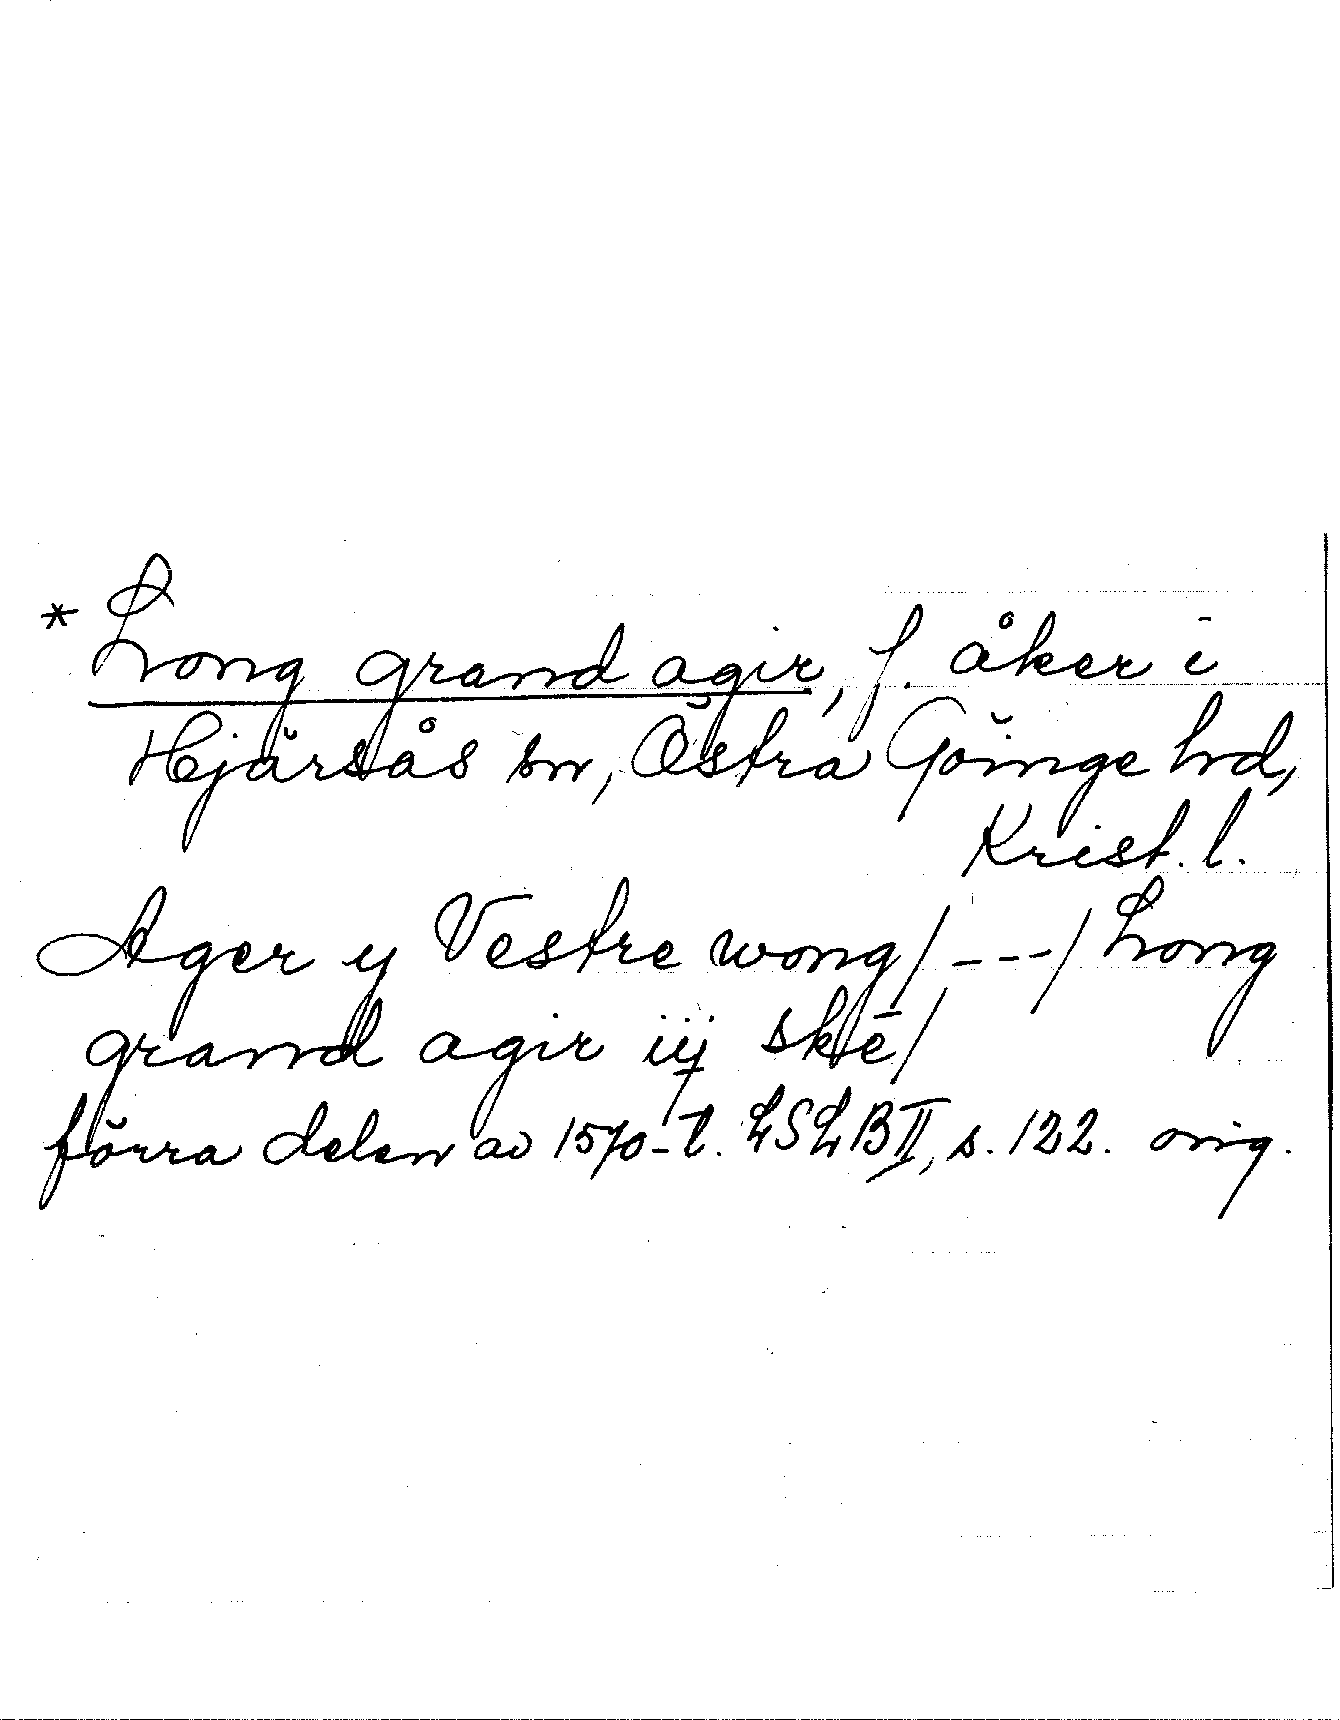 * Long grand agir, f. åker i
Hjärsås sn, Östra Göinge hd,
Krist. l.
Ager y Vestre wong / --- / Long
grand agir iij skē /
förra delen av 1570-t. LSLB II, s. 122. orig.